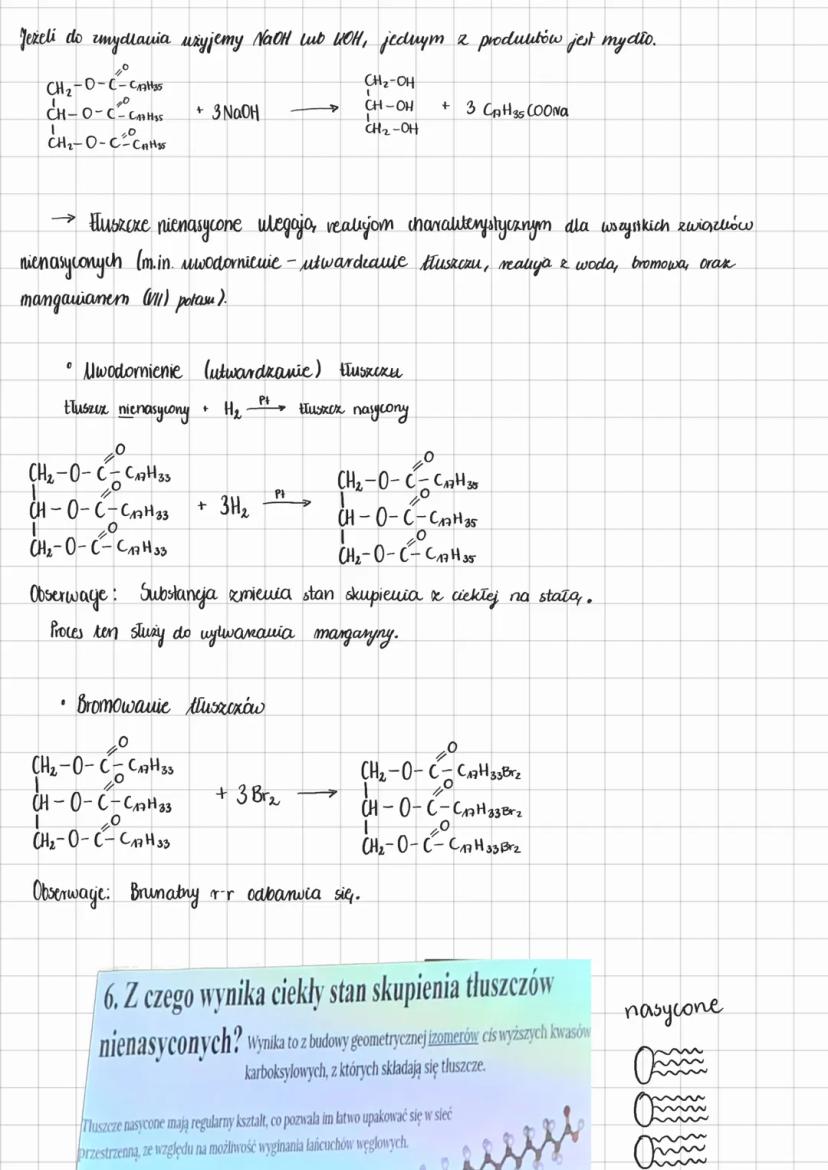 Jeżeli do zmydlania użyjemy NaOH lub KOH, jednym z produktów jest mydło.
CH₂-O-C(=O)-C₁₇H₃₅
CH-O-C(=O)-C₁₇H₃₅ + 3NaOH ⟶ CH₂-OH CH-OH CH₂-OH + 3 C₁₇H₃₅COONa
CH₂-O-C(=O)-C₁₇H₃₅
→ tłuszcze nienasycone ulegają reakcjom charakterystycznym dla wszystkich związków
nienasyconych (m.in. uwodornienie - utwardzanie tłuszczu, reakcja z wodą bromową oraz
manganianem (VII) potasu).
• Uwodornienie (utwardzanie) tłuszczu
tłuszcz nienasycony + H₂ —Pt→ tłuszcz nasycony
CH₂-O-C(=O)-C₁₇H₃₃ CH₂-O-C(=O)-C₁₇H₃₅
CH-O-C(=O)-C₁₇H₃₃ + 3H₂ —Pt→ CH-O-C(=O)-C₁₇H₃₅
CH₂-O-C(=O)-C₁₇H₃₃ CH₂-O-C(=O)-C₁₇H₃₅
Obserwacje: Substancja zmienia stan skupienia z ciekłej na stałą.
Proces ten służy do wytwarzania margaryny.
• Bromowanie tłuszczów
CH₂-O-C(=O)-C₁₇H₃₃ CH₂-O-C(=O)-C₁₇H₃₃Br₂
CH-O-C(=O)-C₁₇H₃₃ + 3Br₂ ⟶ CH-O-C(=O)-C₁₇H₃₃Br₂
CH₂-O-C(=O)-C₁₇H₃₃ CH₂-O-C(=O)-C₁₇H₃₃Br₂
Obserwacje: Brunatny r-r odbarwia się.
6. Z czego wynika ciekły stan skupienia tłuszczów
nienasyconych? Wynika to z budowy geometrycznej izomerów cis wyższych kwasów
karboksylowych, z których składają się tłuszcze.
Tłuszcze nasycone mają regularny kształt, co pozwala im łatwo upakować się w sieć
przestrzenną, ze względu na możliwość wyginania łańcuchów węglowych.
nasycone